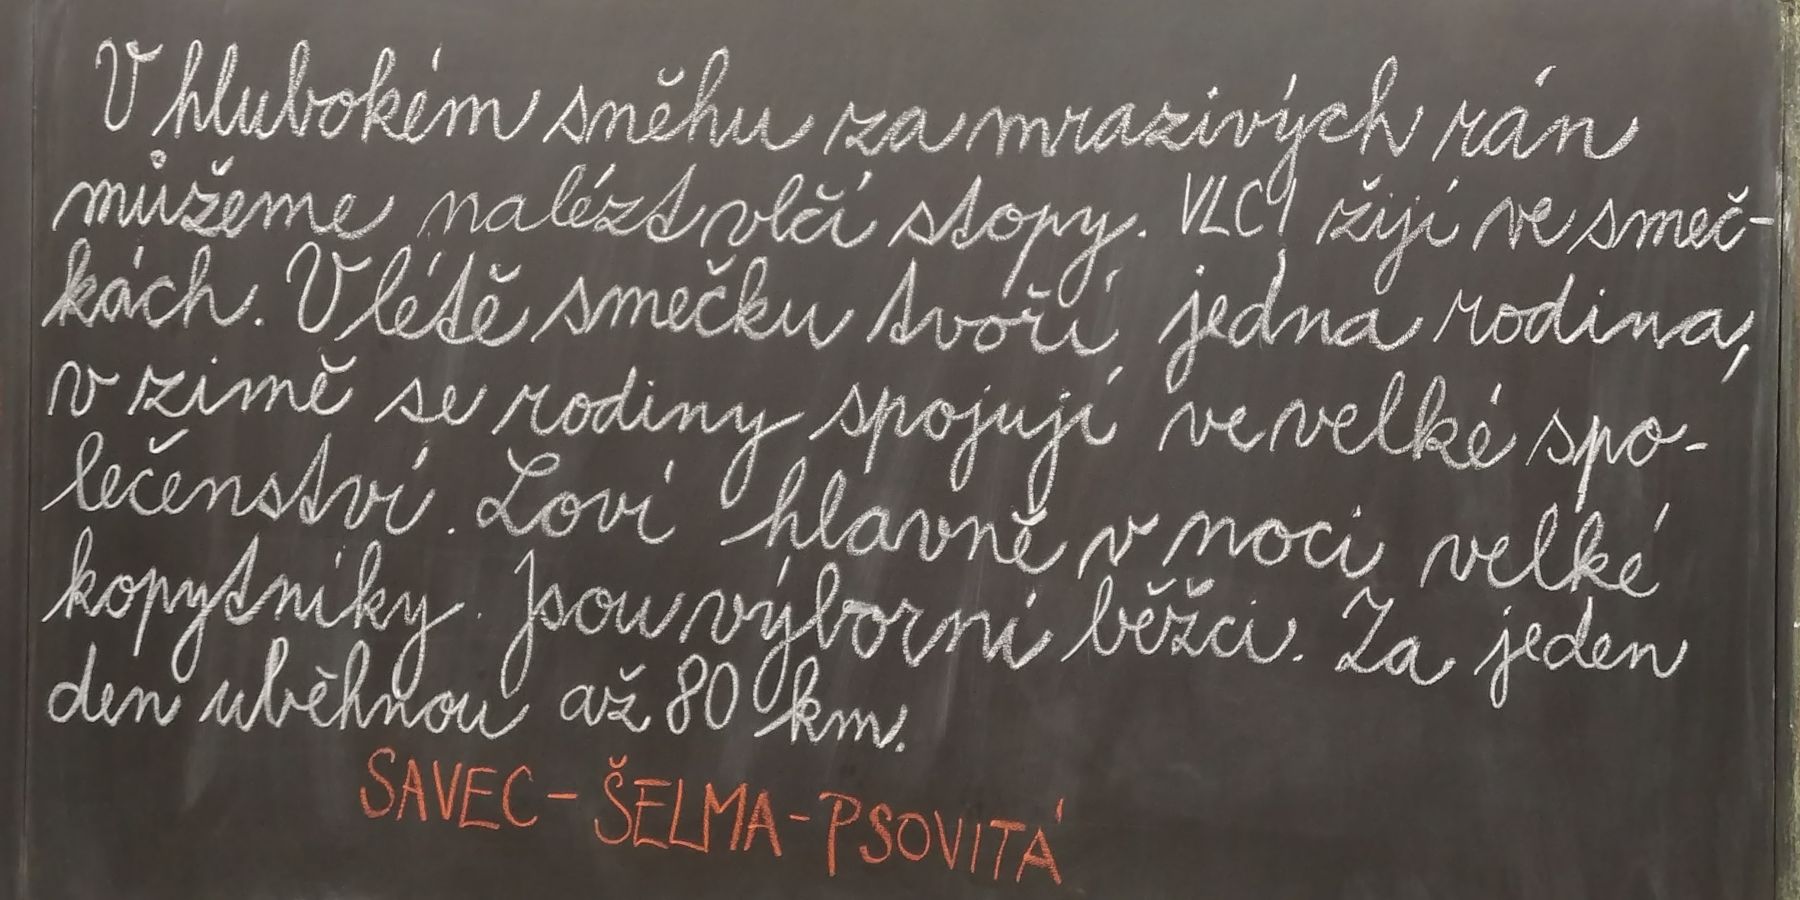 V hlubokém sněhu za mrazivých rán
můžeme nalézt vlčí stopy. VLCI žijí ve smeč-
kách. V létě smečku tvoří jedna rodina,
v zimě se rodiny spojují ve velké spo-
lečenství. Loví hlavně v noci velké
kopytníky. Jsou výborní běžci. Za jeden
den uběhnou až 80 km.
SAVEC - ŠELMA - PSOVITÁ